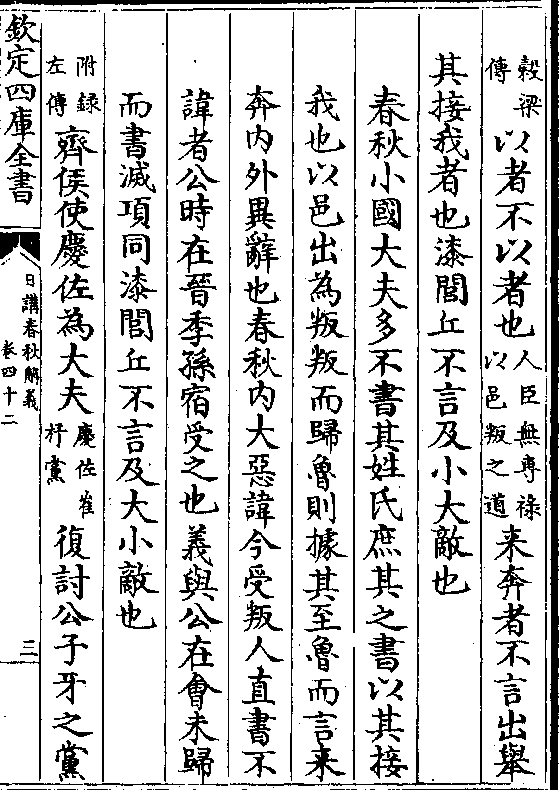 穀梁傳以者不以者也人臣無專祿以邑叛之道来奔者不言出舉
其接我者也漆閭丘不言及小大敵也
春秋小國大夫多不書其姓氏庶其之書以其接
我也以邑出為叛叛而歸魯則據其至魯而言来
奔内外異辭也春秋内大惡諱今受叛人直書不
諱者公時在晉季孫宿受之也義與公在會未歸
而書滅項同漆閭丘不言及大小敵也
附録左傳齊侯使慶佐為大夫慶佐崔杼黨復討公子牙之黨
欽定四庫全書
日講春秋解義
卷四十二
三